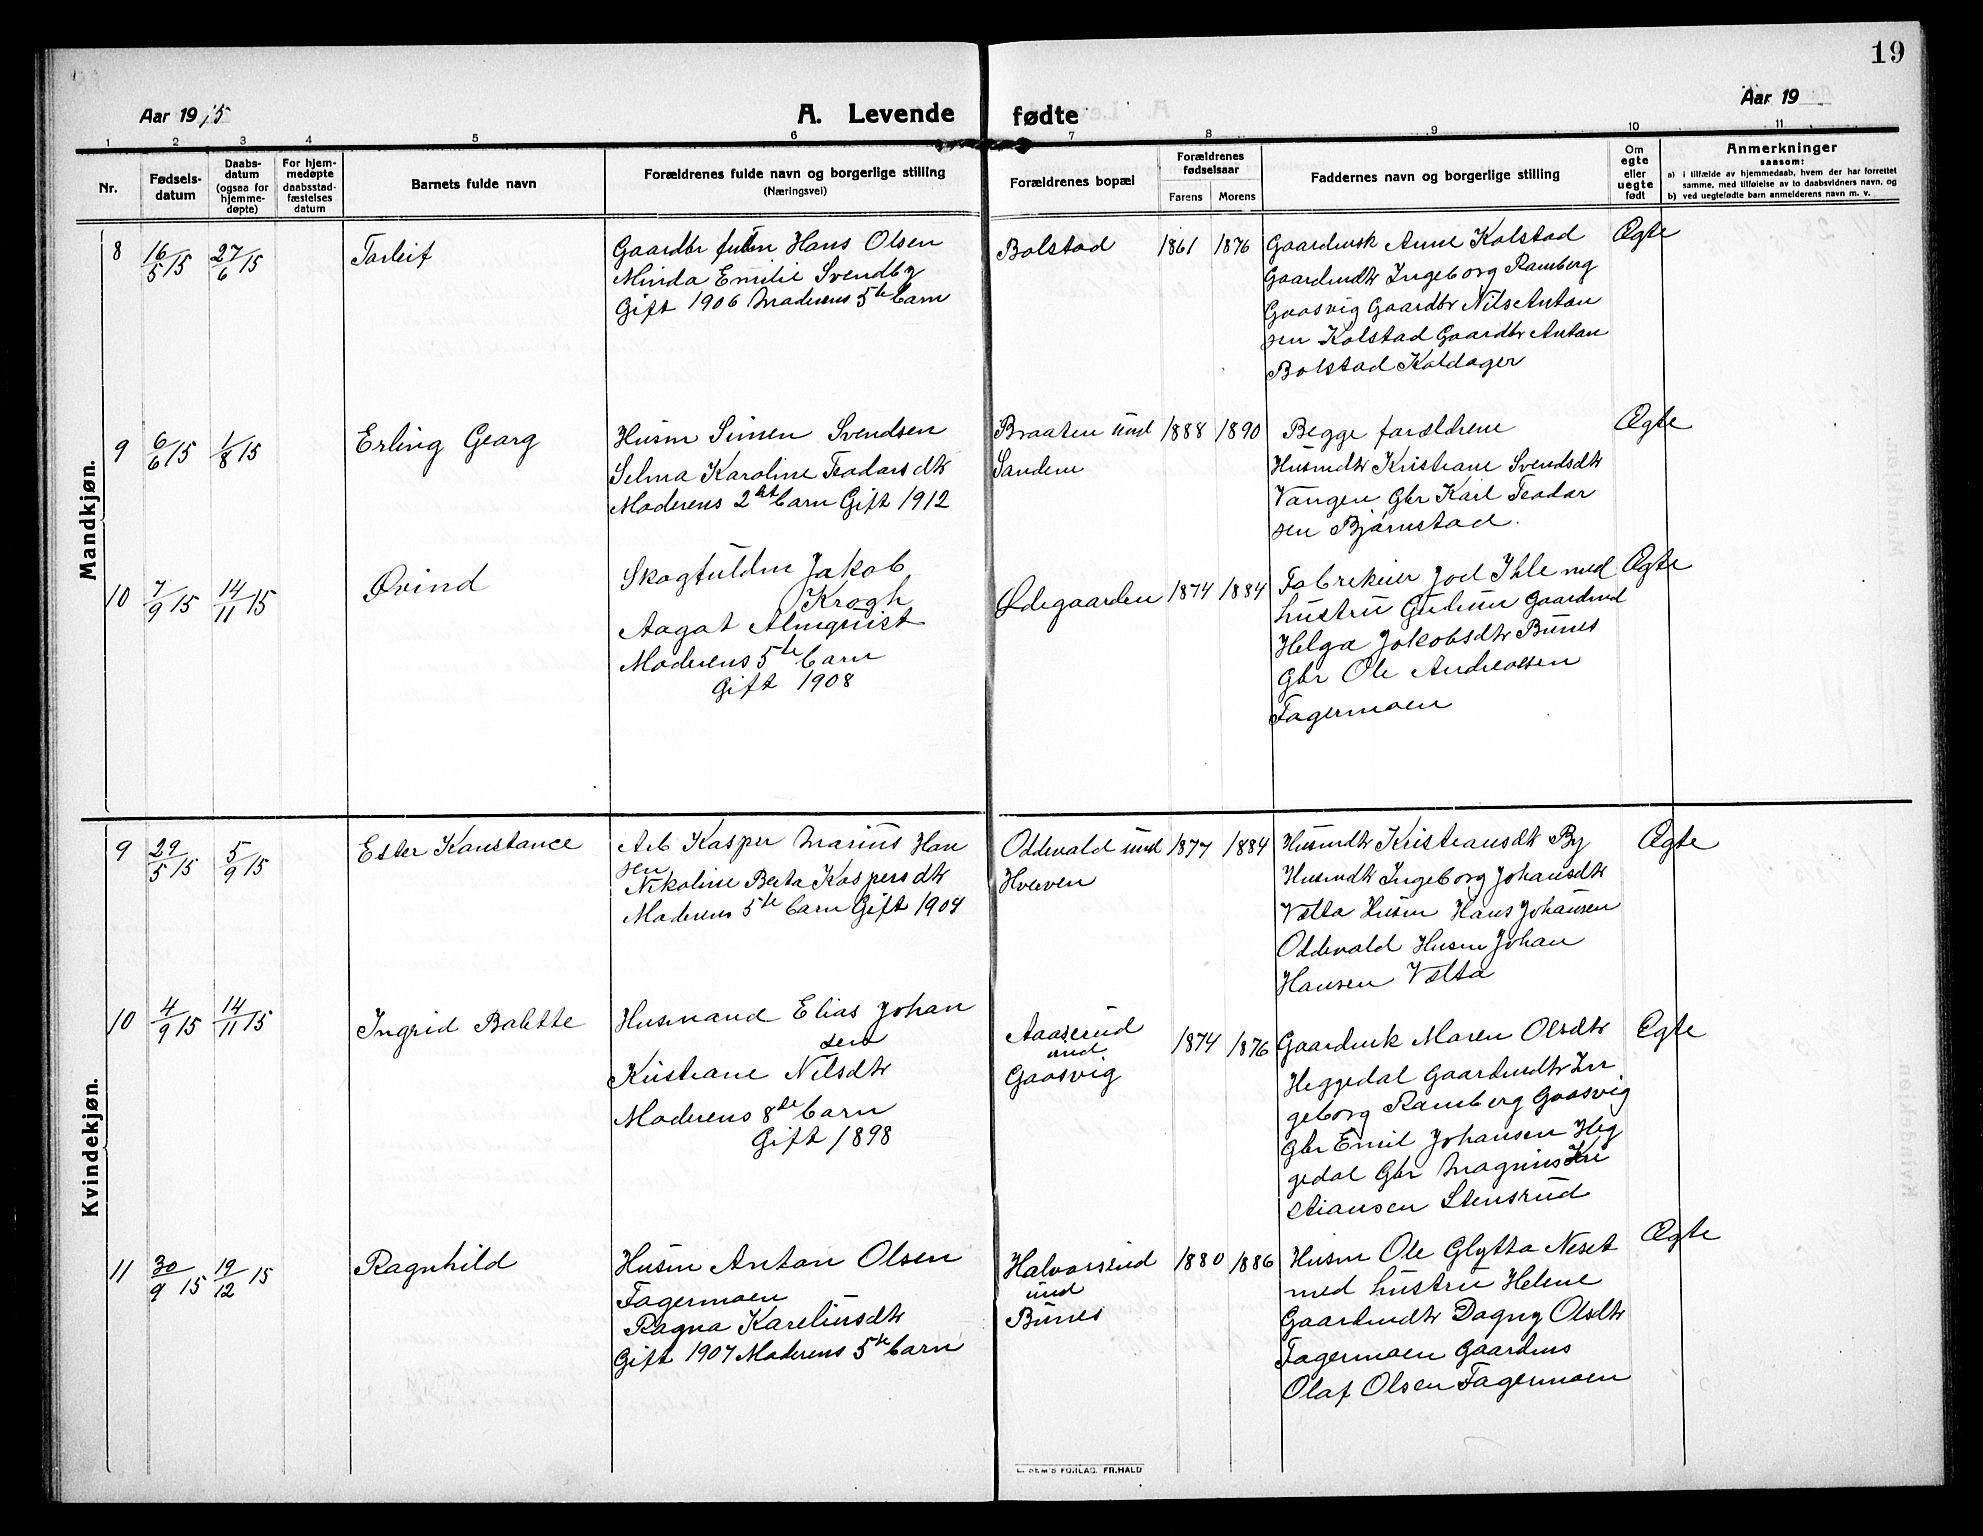 19
Aar 1915
A. Levende fødte
Aar 19
1 2 3 4 5 6 7 8 9 10 11
Nr.
Fødsels-
datum
Daabs-
datum
(ogsaa for
hjemme-
døpte)
For hjem-
medøpte
daabsstad-
fæstelses
datum
Barnets fulde navn
Forældrenes fulde navn og borgerlige stilling
(Næringsvei)
Forældrenes bopæl
Forældrenes
fødselsaar
Farens Morens
Faddernes navn og borgerlige stilling
Om
egte
eller
uegte
født
Anmerkninger
saasom:
a) i tilfælde av hjemmedaab, hvem der har forrettet
samme, med tilføielse av to daabsvidners navn, og
b) ved uegtefødte barn anmelderens navn m. v.
Mandkjøn.
8
16/5 15
27/6 15
Torleif
Gaardbr Hans Olsen
Minda Emilie Svendby
Gift 1906 Moderens 5te barn
Bolstad
1861 1876
Gaardmsk Anne Kolstad
Gaardmdtr Ingeborg Ramberg
Gaasvig Gaardbr Nils Anton
sen Kolstad Gaardbr Anton
Bolstad Koldager
Ægte
9
6/6 15
1/8 15
Erling Georg
Husm Simen Svendsen
Selma Karoline Teodorsdtr
Moderens 2det barn Gift 1912
Braaten und
Sandem
1888 1890
Begge forældrene
Husmdtr Kristiane Svendsdtr
Vangen Gbr Karl Teodor
sen Bjørnstad.
Ægte
10
7/9 15
14/11 15
Øvind
Skogfuldm Jakob
Krogh
Aagot Almqvist
Moderens 5te barn
Gift 1908
Ødegaarden
1874 1884
Fabrikeier Joel Ihle med
hustru Gudrun Gaardmd
Helga Jakobsdtr Bunes
Gbr Ole Andreasen
Fagermoen
Ægte
Kvindekjøn.
9
29/5 15
5/9 15
Ester Konstance
Arb Kasper Marius Han
sen
Nikoline Berta Kaspersdtr
Moderens 5te barn Gift 1904
Oddevald und
Hverven
1877 1884
Husmdtr Kristiansdt By
Husmdtr Ingeborg Johansdtr
Vætta Husm Hans Johansen
Oddevald Husm Johan
Hansen Vætta
Ægte
10
4/9 15
14/11 15
Ingrid Bolette
Husmand Elias Johan
sen
Kristiane Nilsdtr
Moderens 8de barn
Gift 1898
Aaaserud
und
Gaasvig
1874 1876
Gaardmsk Maren Olsdtr
Heggedal Gaardmdtr In
geborg Ramberg Gaasvig
Gbr Emil Johansen Heg
gedal Gbr Magnus Kri
stiansen Stensrud
Ægte
11
30/9 15
19/12 15
Ragnhild
Husm Anton Olsen
Fagermoen
Ragna Kareliusdtr
Gift 1907 Moderens 5te barn
Halvorserud
und
Bunes
1880 1886
Husm Ole Glytta Neset
med hustru Helene
Gaardmdtr Dagny Olsdtr
Fagermoen Gaardms
Olaf Olsen Fagermoen
Ægte
E. SEM'S FORLAG. FR.HALD